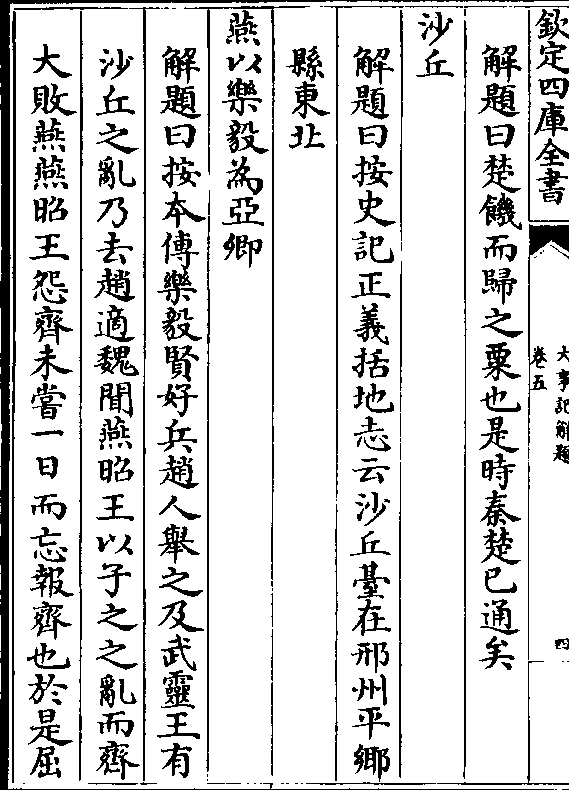 欽定四庫全書
大事記解題
卷五
四
解題曰楚饑而歸之粟也是時秦楚已通矣
沙丘
解題曰按史記正義括地志云沙丘臺在邢州平鄉
縣東北
燕以樂毅為亞卿
解題曰按本傳樂毅賢好兵趙人舉之及武靈王有
沙丘之亂乃去趙適魏聞燕昭王以子之之亂而齊
大敗燕燕昭王怨齊未嘗一日而忘報齊也於是屈